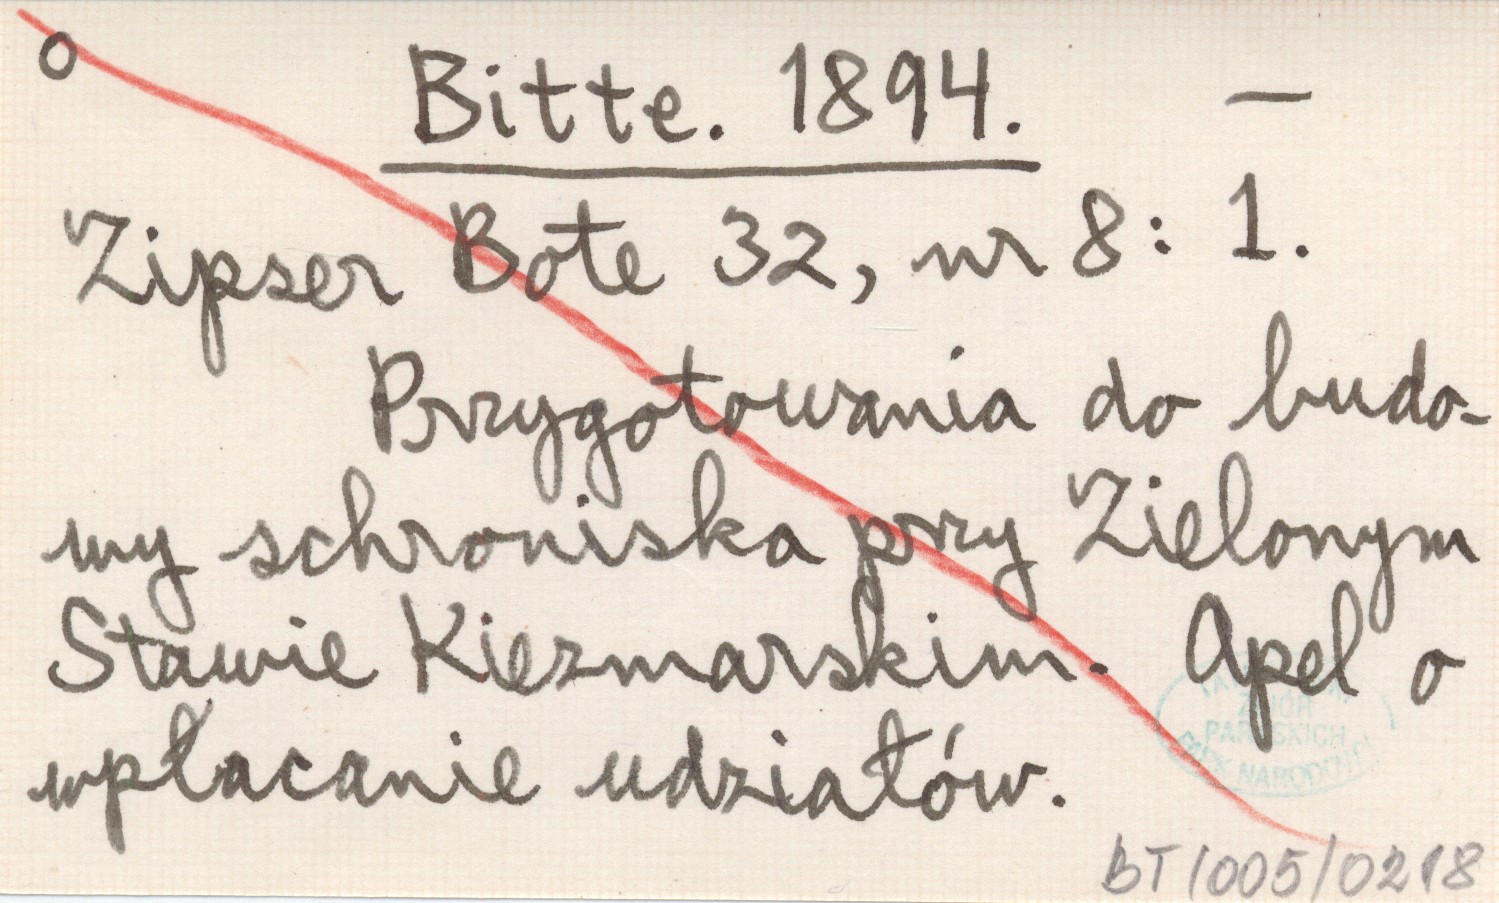 o Bitte. 1894. —
Zipser Bote 32, nr 8: 1.
Przygotowania do budo-
wy schroniska przy Zielonym
Stawie Kiezmarskim. Apel o
wpłacanie udziałów.
ZBIÓR
PARYSKICH
PARK NARODOWY
BT/005/0218